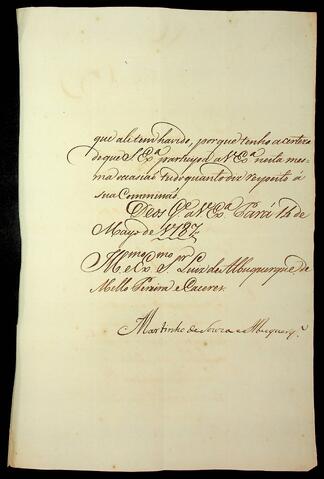 que ali tem havido, porque tenho a certeza
de que S. Exª. participa a V. Exª. nesta mes-
ma occasiaõ tudo quanto diz respeito á
sua Commissaõ.
Deos Gᵉ. a V. Exª. Pará 14 de
Mayo de 1787.
Illᵐᵒ. e Exᵐᵒ. Sʳ. Luiz de Albuquerque de
Mello Pereira e Caceres.
Martinho de Souza e Albuquerq.ᵉ